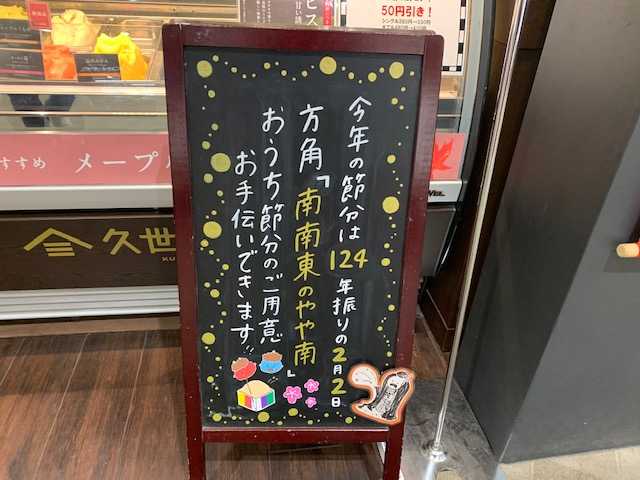 今年の節分は124年振りの2月2日
方角「南南東のやや南」
おうち節分のご用意
お手伝いできます!!
50円引き!
すすめ メープル
久世
KU